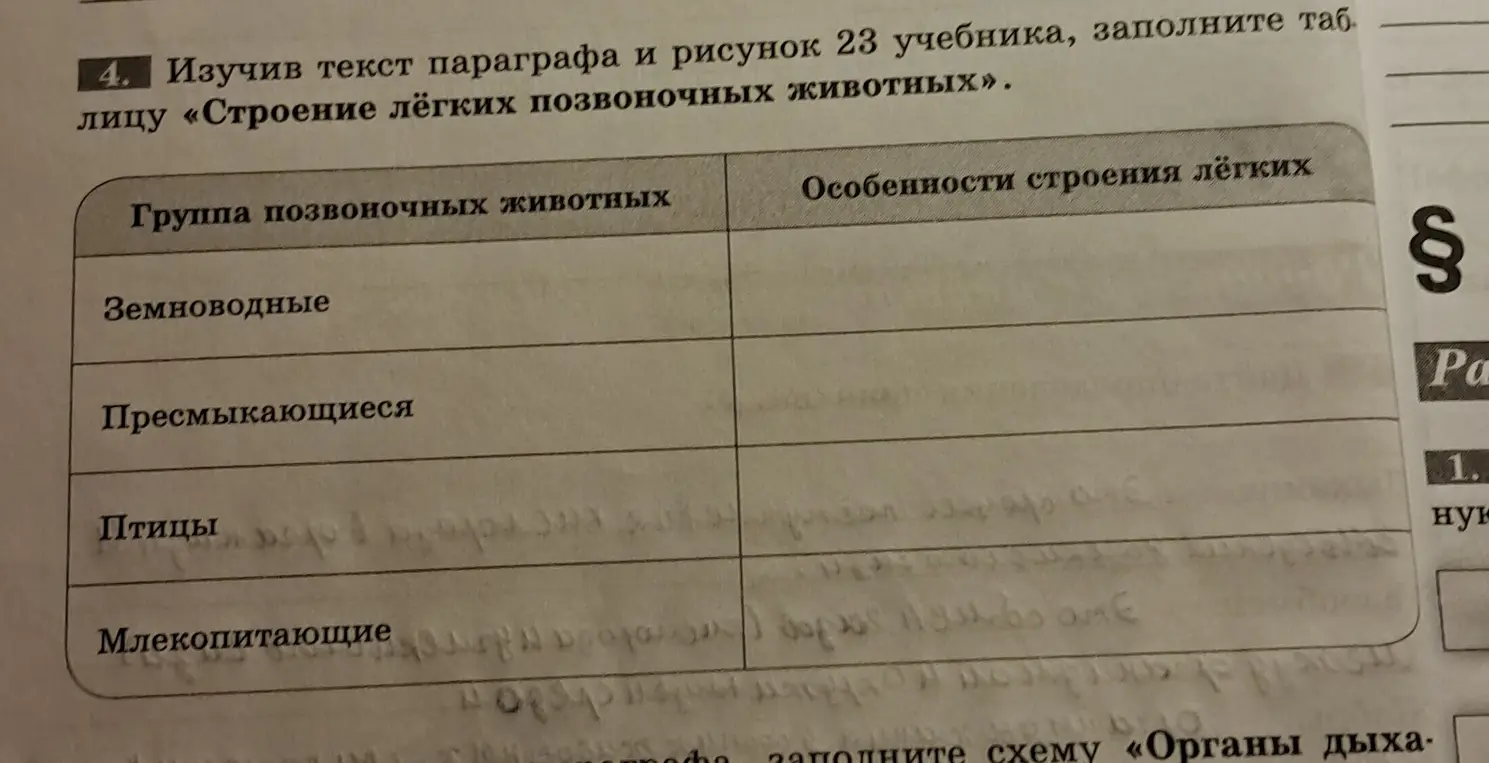 4. Изучив текст параграфа и рисунок 23 учебника, заполните таб-
лицу «Строение лёгких позвоночных животных».
Группа позвоночных животных
Особенности строения лёгких
Земноводные
Пресмыкающиеся
Птицы
Млекопитающие
заполните схему «Органы дыха-
§
Ра
1.
ную